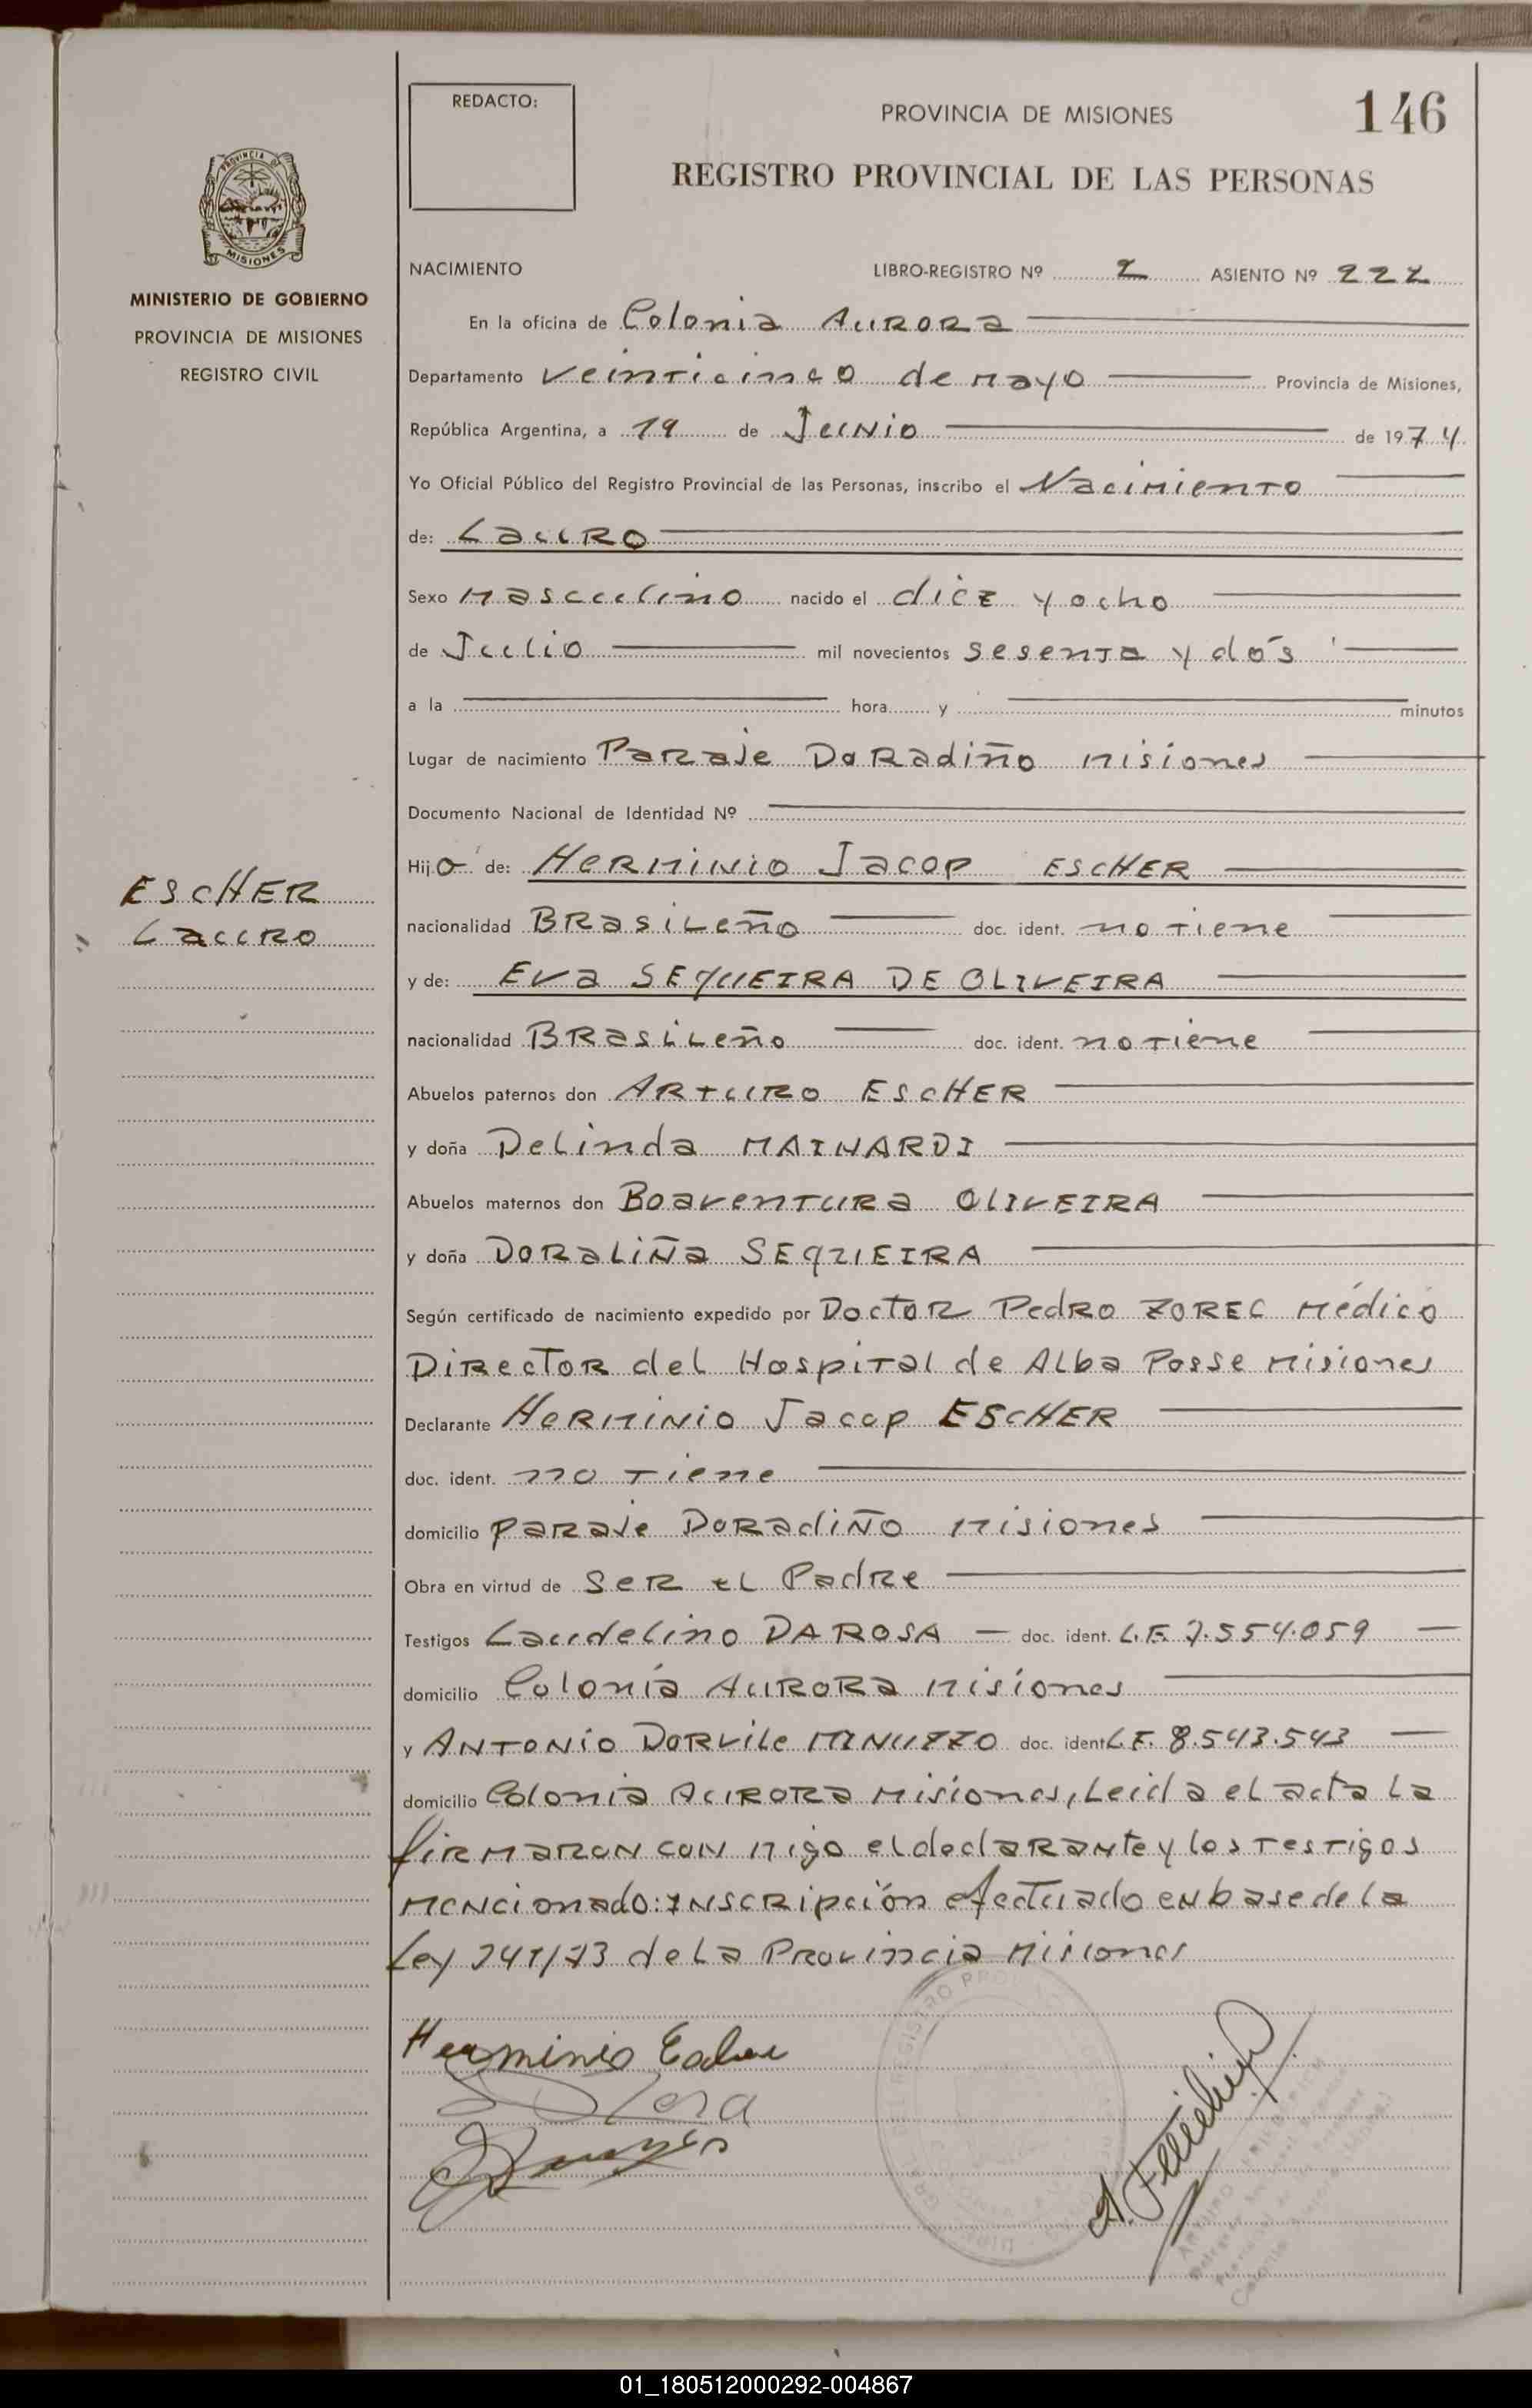 REDACTO:
PROVINCIA DE MISIONES
146
REGISTRO PROVINCIAL DE LAS PERSONAS
PROVINCIA DE
MISIONES
MINISTERIO DE GOBIERNO
PROVINCIA DE MISIONES
REGISTRO CIVIL
NACIMIENTO LIBRO-REGISTRO Nº 2 ASIENTO Nº 222
En la oficina de Colonia AURORa
Departamento Veinticinco de mayo Provincia de Misiones,
República Argentina, a 19 de Junio de 1974
Yo Oficial Público del Registro Provincial de las Personas, inscribo el Nacimiento
de: LauRO
Sexo Masculino nacido el diez y ocho
de Julio mil novecientos sesenta y dós
a la hora y minutos
Lugar de nacimiento PaRaje DoRadiño Misiones
Documento Nacional de Identidad Nº
Hijo de: HeRMiNiO Jacop ESCHER
ESCHER
LauRO
nacionalidad BRasiLeño doc. ident. no tiene
y de: Eva SEQUEIRA DE OLIVEIRA
nacionalidad BRasiLeño doc. ident. no tiene
Abuelos paternos don ARTURO ESCHER
y doña DeLinda MAINARDI
Abuelos maternos don BoaventuRa OLIVEIRA
y doña DoRaLiÑa SEQUIEIRA
Según certificado de nacimiento expedido por DoctoR PedRO ZOREC Médico
DiRectoR deL HospiTal de ALba Posse Misiones
Declarante HeRMiNiO Jacop ESCHER
doc. ident. no tiene
domicilio PaRaje DoRadiÑo Misiones
Obra en virtud de SeR eL PadRe
Testigos Laudelino DA ROSA doc. ident. L.E. 7.554.059
domicilio Colonia AURORa Misiones
y ANTONiO DoRViLe MINUZZO doc. ident L.E. 8.543.543
domicilio Colonia AURORa Misiones, Leida eL acta La
fiRMaRoN coN Migo el declaRaNte y los testigos
MeNcionado: INScRipción efectuado eN base de la
Ley 241/73 de La Provincia Misiones
Herminio Escher
A.
01_180512000292-004867